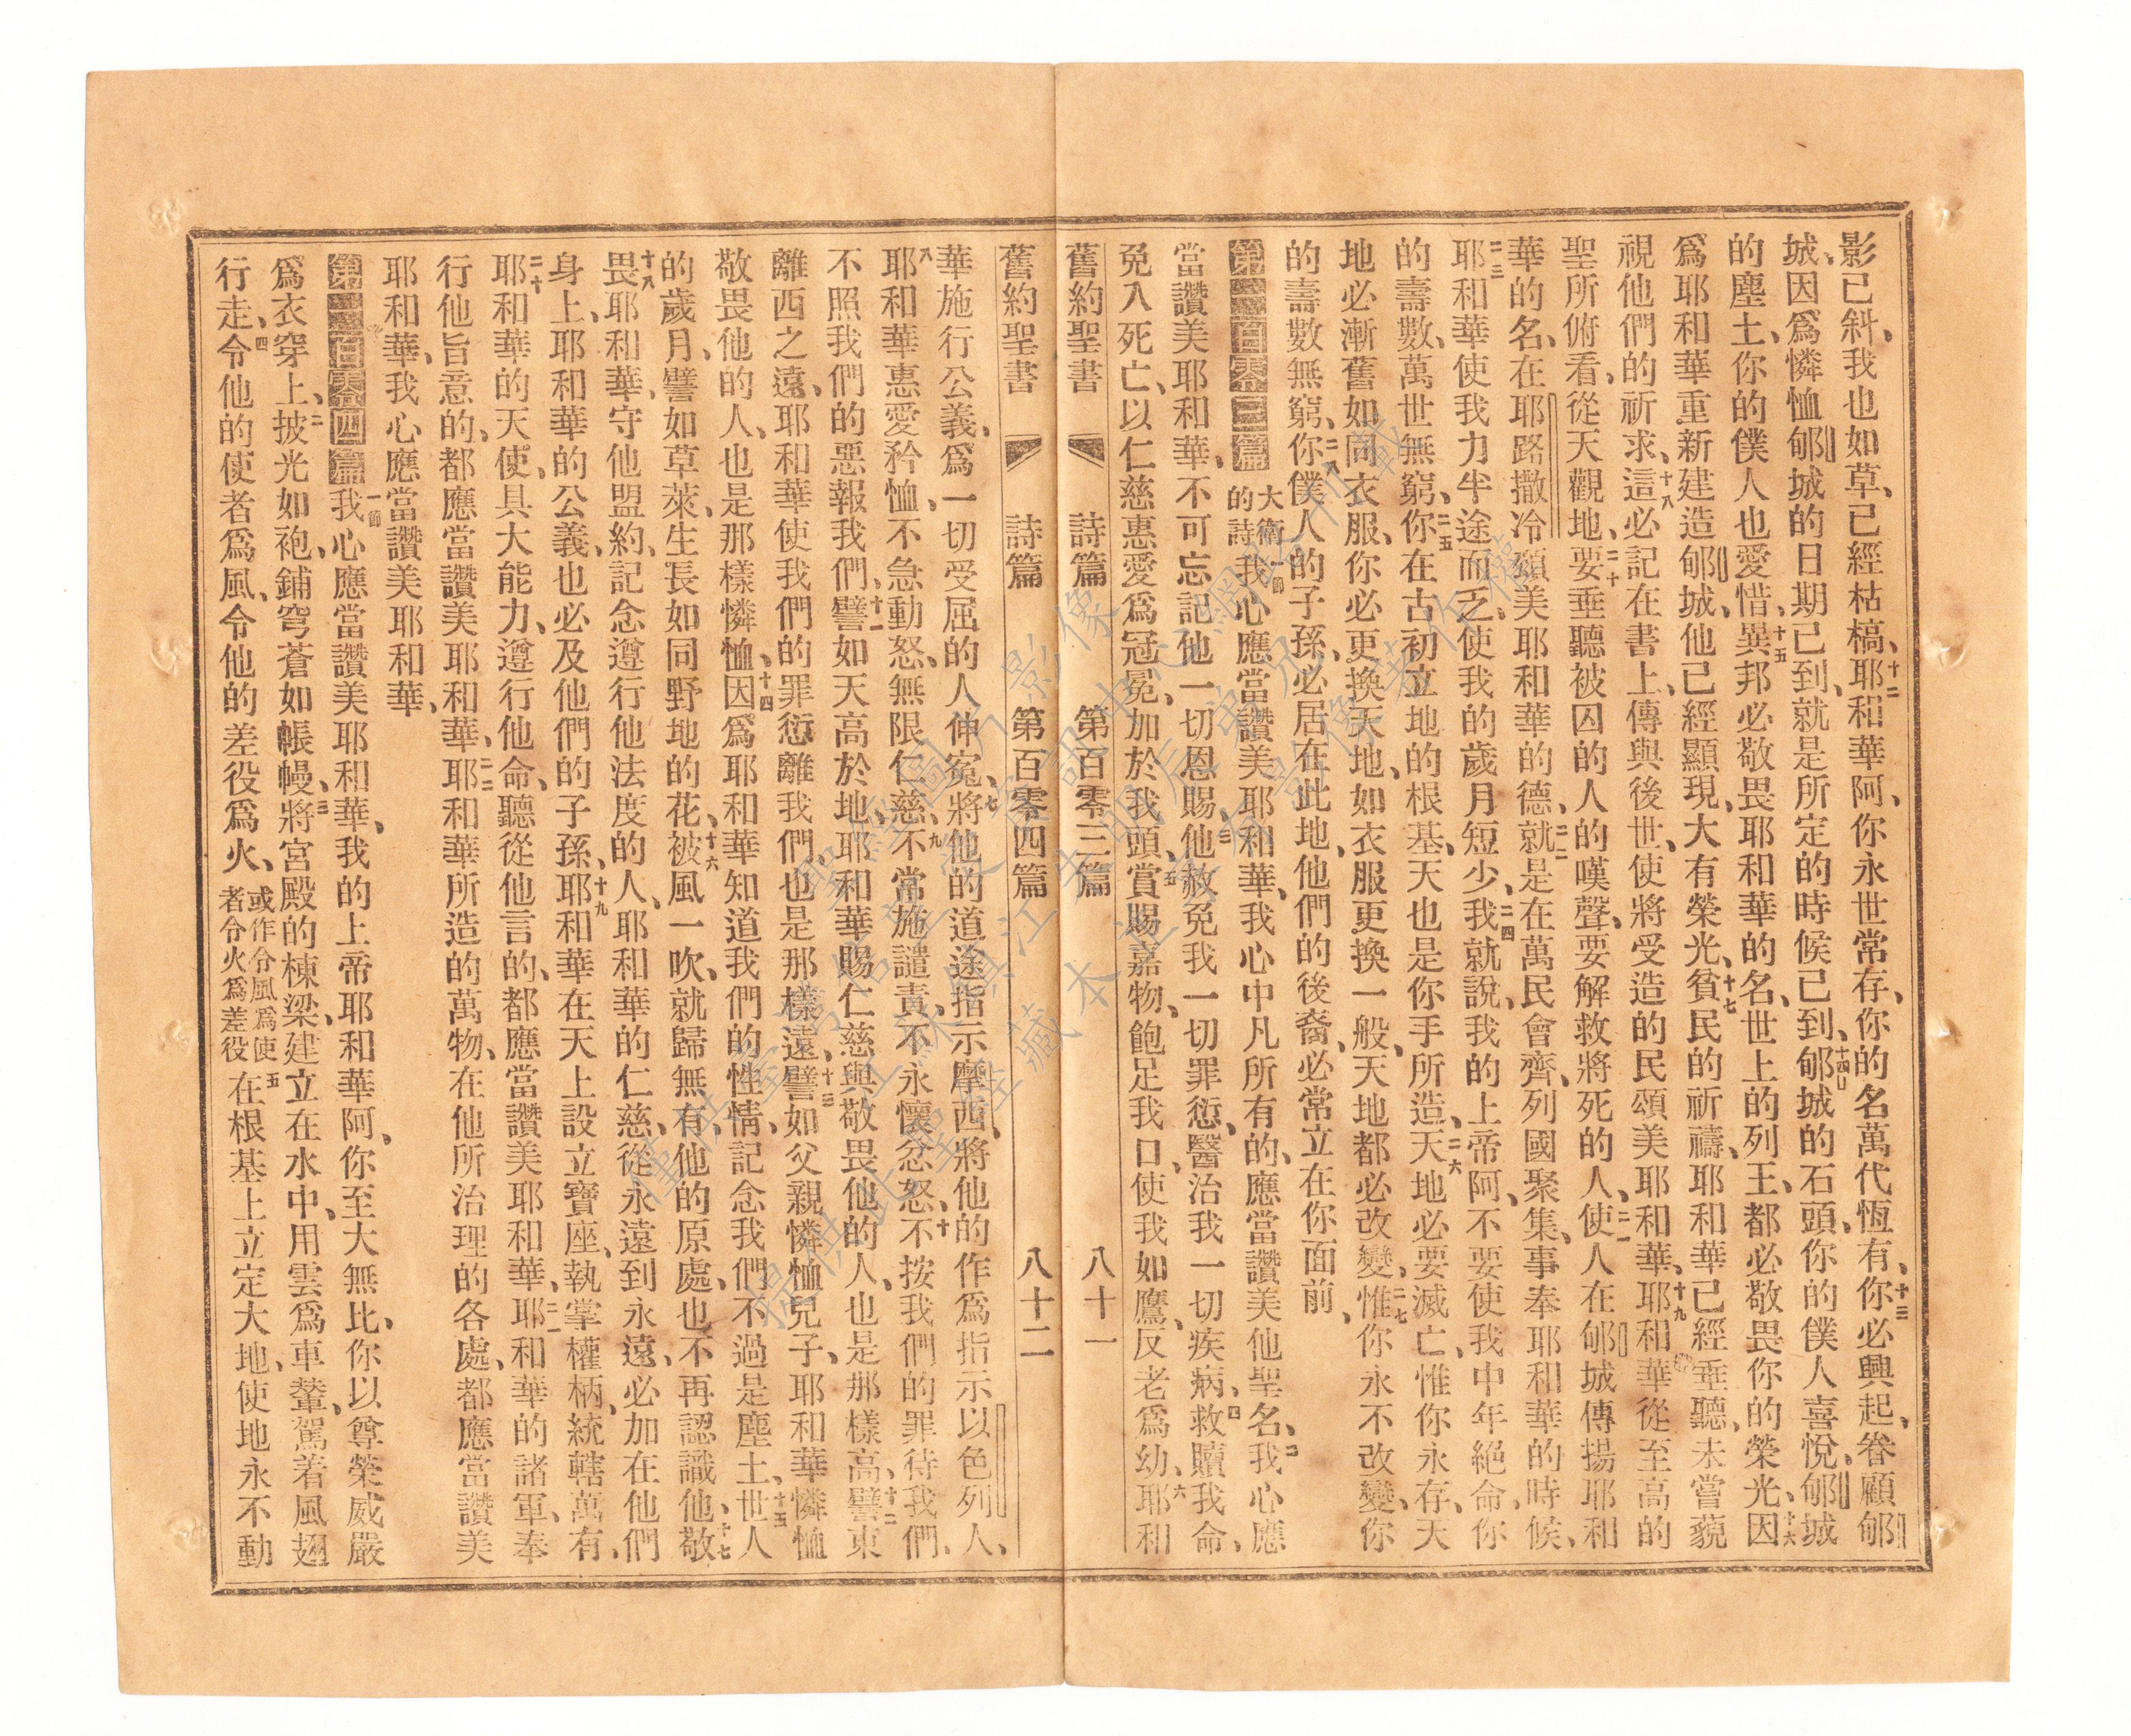 影已斜、我也如草、已經枯槁、十二耶和華阿、你永世常存、你的名萬代恆有、十三你必興起、眷顧郇
城、因爲憐恤郇城的日期已到、就是所定的時候已到、十四郇城的石頭、你的僕人喜悅、郇城
的塵土、你的僕人也愛惜、十五異邦必敬畏耶和華的名、世上的列王、都必敬畏你的榮光、十六因
爲耶和華重新建造郇城、他已經顯現、大有榮光、十七貧民的祈禱、耶和華已經垂聽、未嘗藐
視他們的祈求、十八這必記在書上、傳與後世、使將受造的民頌美耶和華、十九耶和華從至高的
聖所俯看、從天觀地、二十要垂聽被囚的人的嘆聲、要解救將死的人、二一使人在郇城傳揚耶和
華的名、在耶路撒冷頌美耶和華的德、二二就是在萬民會齊、列國聚集、事奉耶和華的時候、
二三耶和華使我力半途而乏、使我的歲月短少、二四我就說、我的上帝阿、不要使我中年絕命、你
的壽數、萬世無窮、二五你在古初立地的根基、天也是你手所造、二六天地必要滅亡、惟你永存、天
地必漸舊如同衣服、你必更換天地、如衣服更換一般、天地都必改變、二七惟你永不改變、你
的壽數無窮、二八你僕人的子孫、必居在此地、他們的後裔、必常立在你面前、
第一百零三篇 大衛的詩 一節我心應當讚美耶和華、我心中凡所有的、應當讚美他聖名、二我心應
當讚美耶和華、不可忘記他一切恩賜、三他赦免我一切罪愆、醫治我一切疾病、四救贖我命、
免入死亡、以仁慈惠愛爲冠冕、加於我頭、五賞賜嘉物、飽足我口、使我如鷹、反老爲幼、六耶和
舊約聖書 詩篇 第百零三篇 八十一
舊約聖書 詩篇 第百零四篇 八十二
華施行公義、爲一切受屈的人伸寃、七將他的道途指示摩西、將他的作爲指示以色列人、
八耶和華惠愛矜恤、不急動怒、無限仁慈、九不常施譴責、不永懷忿怒、十不按我們的罪待我們、
不照我們的惡報我們、十一譬如天高於地、耶和華賜仁慈與敬畏他的人、也是那樣高、十二譬東
離西之遠、耶和華使我們的罪愆離我們、也是那樣遠、十三譬如父親憐恤兒子、耶和華憐恤
敬畏他的人、也是那樣憐恤、十四因爲耶和華知道我們的性情、記念我們不過是塵土、十五世人
的歲月、譬如草萊、生長如同野地的花、十六被風一吹、就歸無有、他的原處、也不再認識他、十七敬
畏耶和華、十八守他盟約、記念遵行他法度的人、耶和華的仁慈、從永遠到永遠、必加在他們
身上、耶和華的公義、也必及他們的子孫、十九耶和華在天上設立寶座、執掌權柄、統轄萬有、
二十耶和華的天使、具大能力、遵行他命、聽從他言的、都應當讚美耶和華、二一耶和華的諸軍、奉
行他旨意的、都應當讚美耶和華、二二耶和華所造的萬物、在他所治理的各處、都應當讚美
耶和華、我心應當讚美耶和華、
第一百零四篇 一節我心應當讚美耶和華、我的上帝耶和華阿、你至大無比、你以尊榮威嚴
爲衣穿上、二披光如袍、鋪穹蒼如帳幔、三將宮殿的棟梁、建立在水中、用雲爲車輦、駕着風翅
行走、四令他的使者爲風、令他的差役爲火、或作令風爲使者令火爲差役 五在根基上立定大地、使地永不動